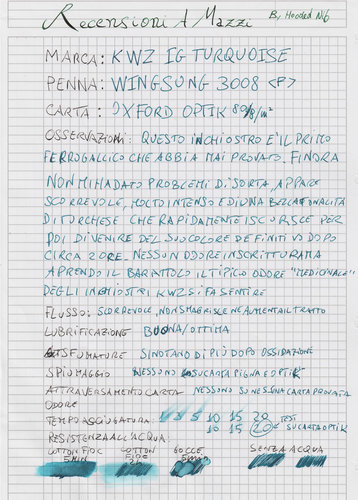 Recensioni A Mazzi By Hooded Nib
MARCA: KWZ IG TURQUOISE
PENNA: WINGSUNG 3008 <F>
CARTA: OXFORD OPTIK 80g/m²
OSSERVAZIONI: QUESTO INCHIOSTRO È IL PRIMO
FERROGALLICO CHE ABBIA MAI PROVATO. FINORA
NON MI HA DATO PROBLEMI DI SORTA, APPARE
SCORREVOLE, MOLTO INTENSO E DI UNA BELLA TONALITÀ
DI TURCHESE CHE RAPIDAMENTE ISCURISCE PER
POI DIVENIRE DEL SUO COLORE DEFINITIVO DOPO
CIRCA 2 ORE. NESSUN ODORE IN SCRITTURA MA
APRENDO IL BARATTOLO IL TIPICO ODORE "MEDICINALE"
DEGLI INCHIOSTRI KWZ SI FA SENTIRE
FLUSSO: SCORREVOLE, NON SMAGRISCE NE AUMENTA IL TRATTO
LUBRIFICAZIONE BUONA/OTTIMA
SFUMATURE SI NOTANO DI PIÙ DOPO OSSIDAZIONE
SPIUMAGGIO NESSUNO SU CARTA PIGNA E OPTIK
ATTRAVERSAMENTO CARTA NESSUNO SU NESSUNA CARTA PROVATA
ODORE
TEMPO ASCIUGATURA: 5 10 15 20 TEST
10 15 20 SU CARTA OPTIK
RESISTENZA ALL'ACQUA:
COTTON FIOC COTTON FIOC GOCCE SENZA ACQUA
5 MIN 5 MIN